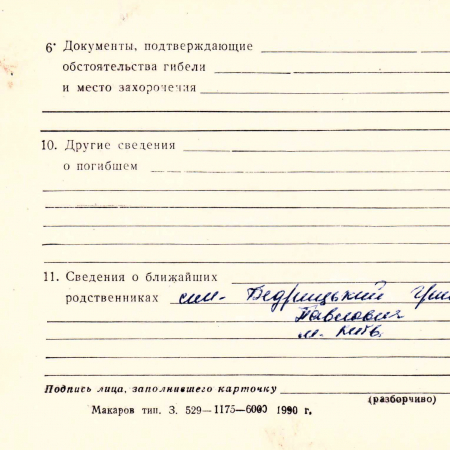 6• Документы, подтверждающие
обстоятельства гибели
и место захоронения
10. Другие сведения
о погибшем
11. Сведения о ближайших
родственниках син- Бедрицький
Павлович
м. Київ.
Подпись лица, заполнившего карточку
(разборчиво)
Макаров тип. З. 529—1175—6000 1990 г.